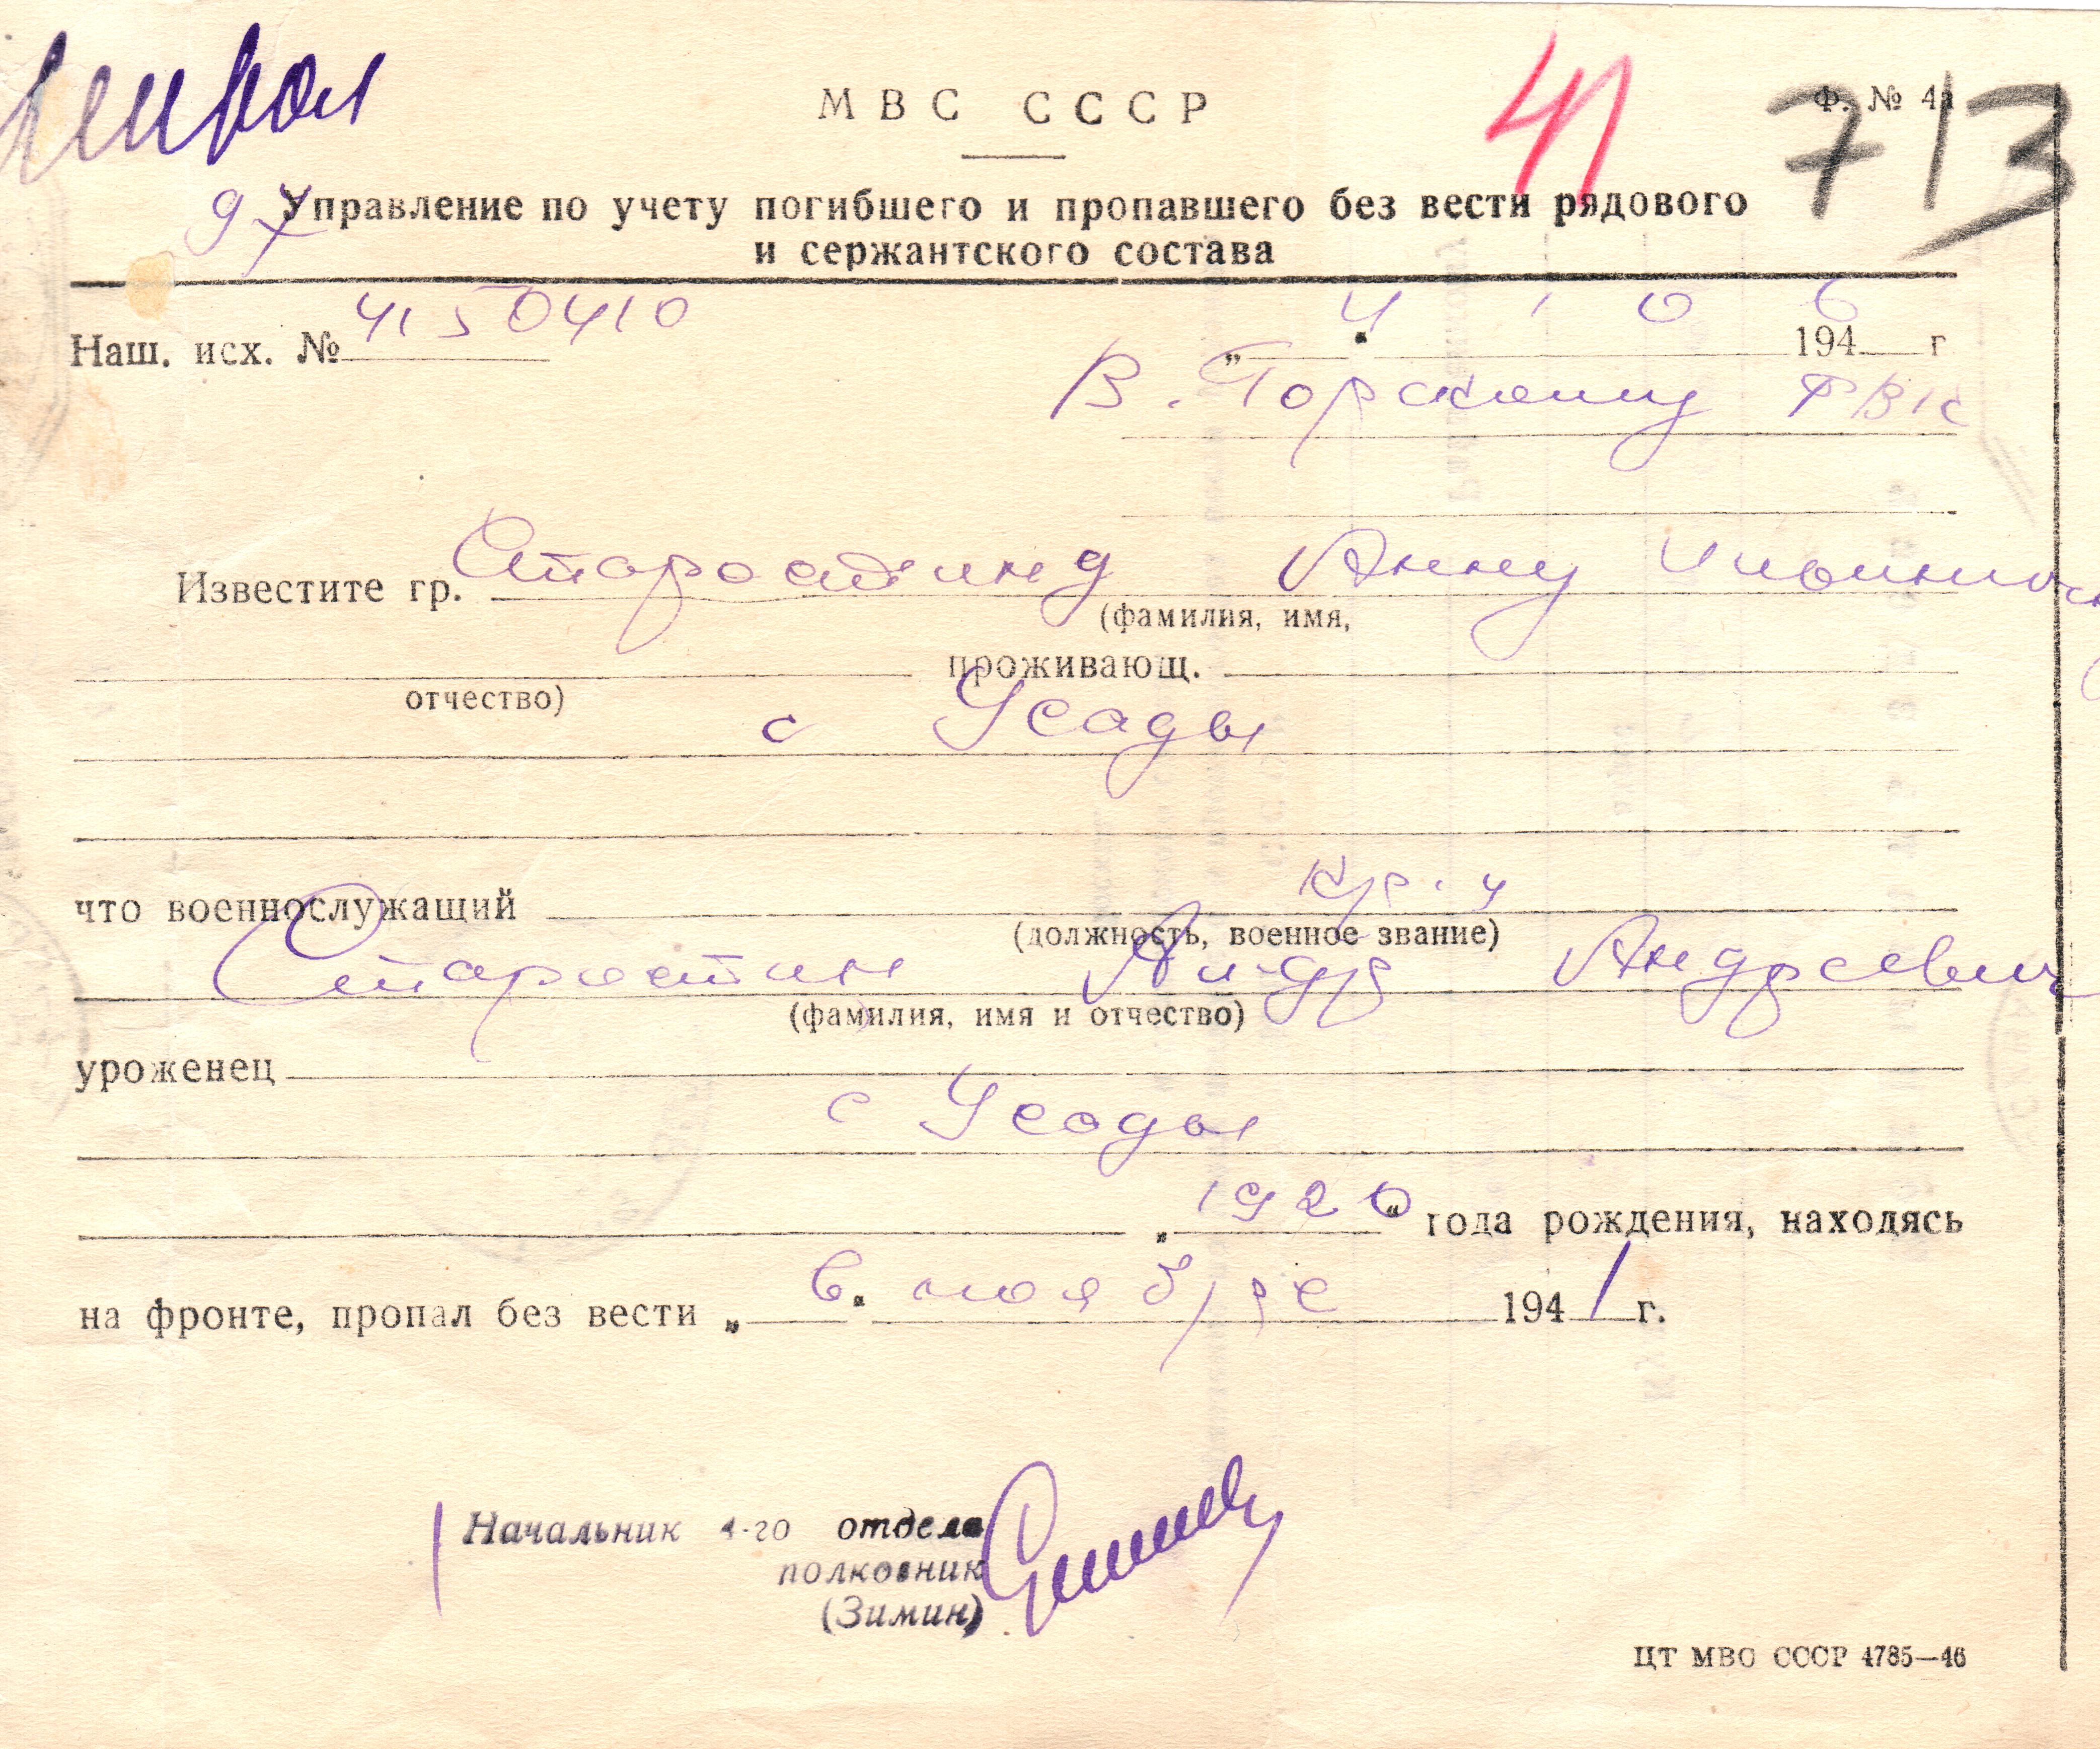 41
713
МВС СССР
Ф. № 4а
97
Управление по учету погибшего и пропавшего без вести рядового
и сержантского состава
Наш. исх. № 4150410 „4" 10 1946 г
В. Горскому РВК
Известите гр. Старостину Анну Ильиничну
(фамилия, имя,
отчество) проживающ.
с Усады
что военнослужащий кр-ц
(должность, военное звание)
Старостин Андр Андреевич
(фамилия, имя и отчество)
уроженец
с Усады
„1920" года рождения, находясь
на фронте, пропал без вести „в" ноябре 1941 г.
Начальник 4-го отдела
полковник
(Зимин)
ЦТ МВС СССР 4785—46